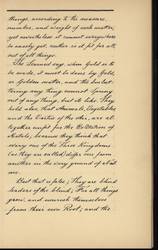 things, according to the measure,
number, and weight of each matter,
yet nevertheless it cannot everywhere
be easily got, neither is it fit for all,
out of all things.
The Learned say, when Gold is to
be made, it must be done by Gold,
or Golden matter, and the best
thing any thing cannot Spring
out of any thing, but its like. They
hold also, that Animals, Vegetables
and the Vertues of the
together unfit for the
Metals, because they think that
every one of the Three Kingdoms
(as they are called) differ one from
another in the very ground of
are.
But that is false; They are blind
leaders of the blind; For all things
grow, and nourish themselves
from their own Root, and the